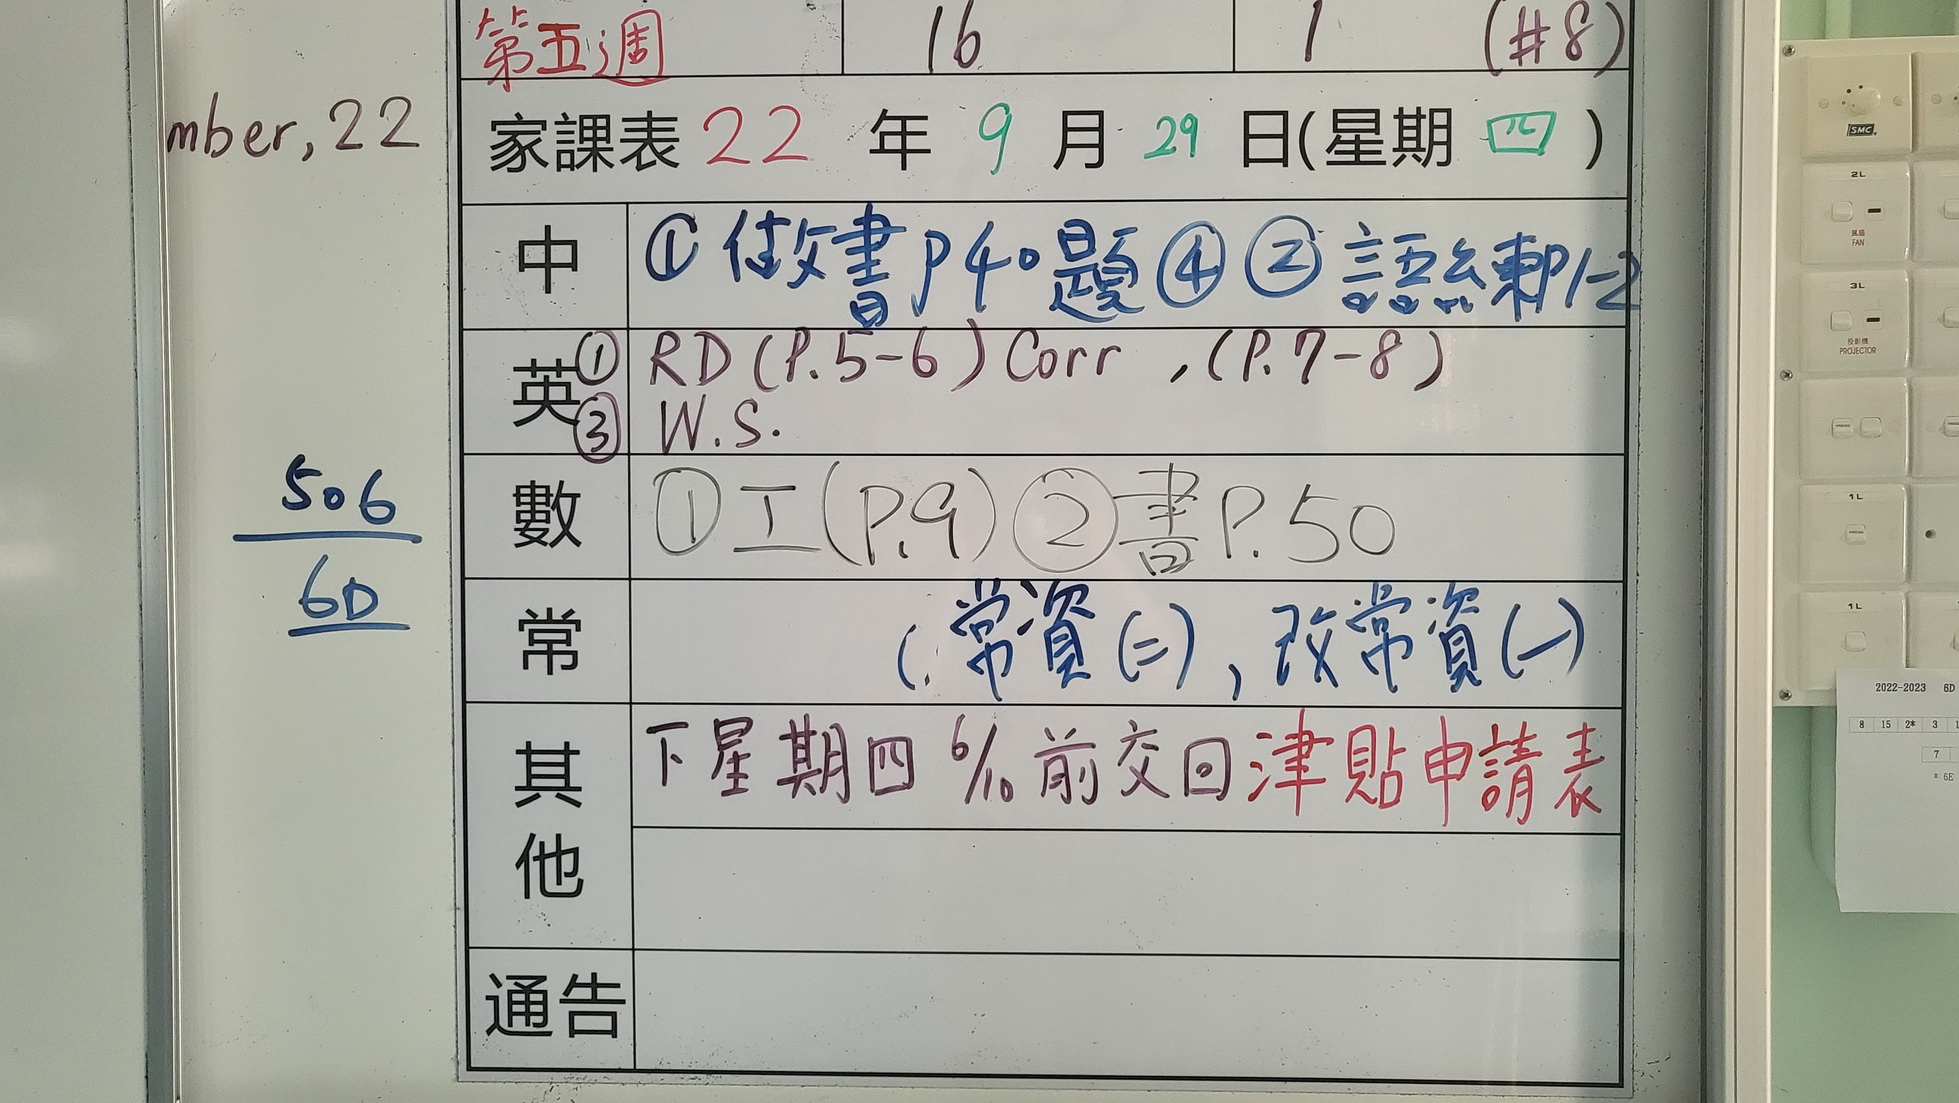 第五週 16 1 (#8)
mber,22
家課表 22 年 9 月 29 日(星期 四 )
中 ① 做書P40題④ ② 語練P1-2
英 ① RD (P.5-6) Corr , (P.7-8)
③ W.S.
506
6D
數 ①工(P.9) ②書P.50
常 (. 常資(二), 改常資(一)
其他 下星期四 6/10 前交回津貼申請表
通告
SMC
2L
風扇
FAN
3L
投影機
PROJECTOR
1L
1L
2022-2023 6D
8 15 2* 3 1
7
* 6E